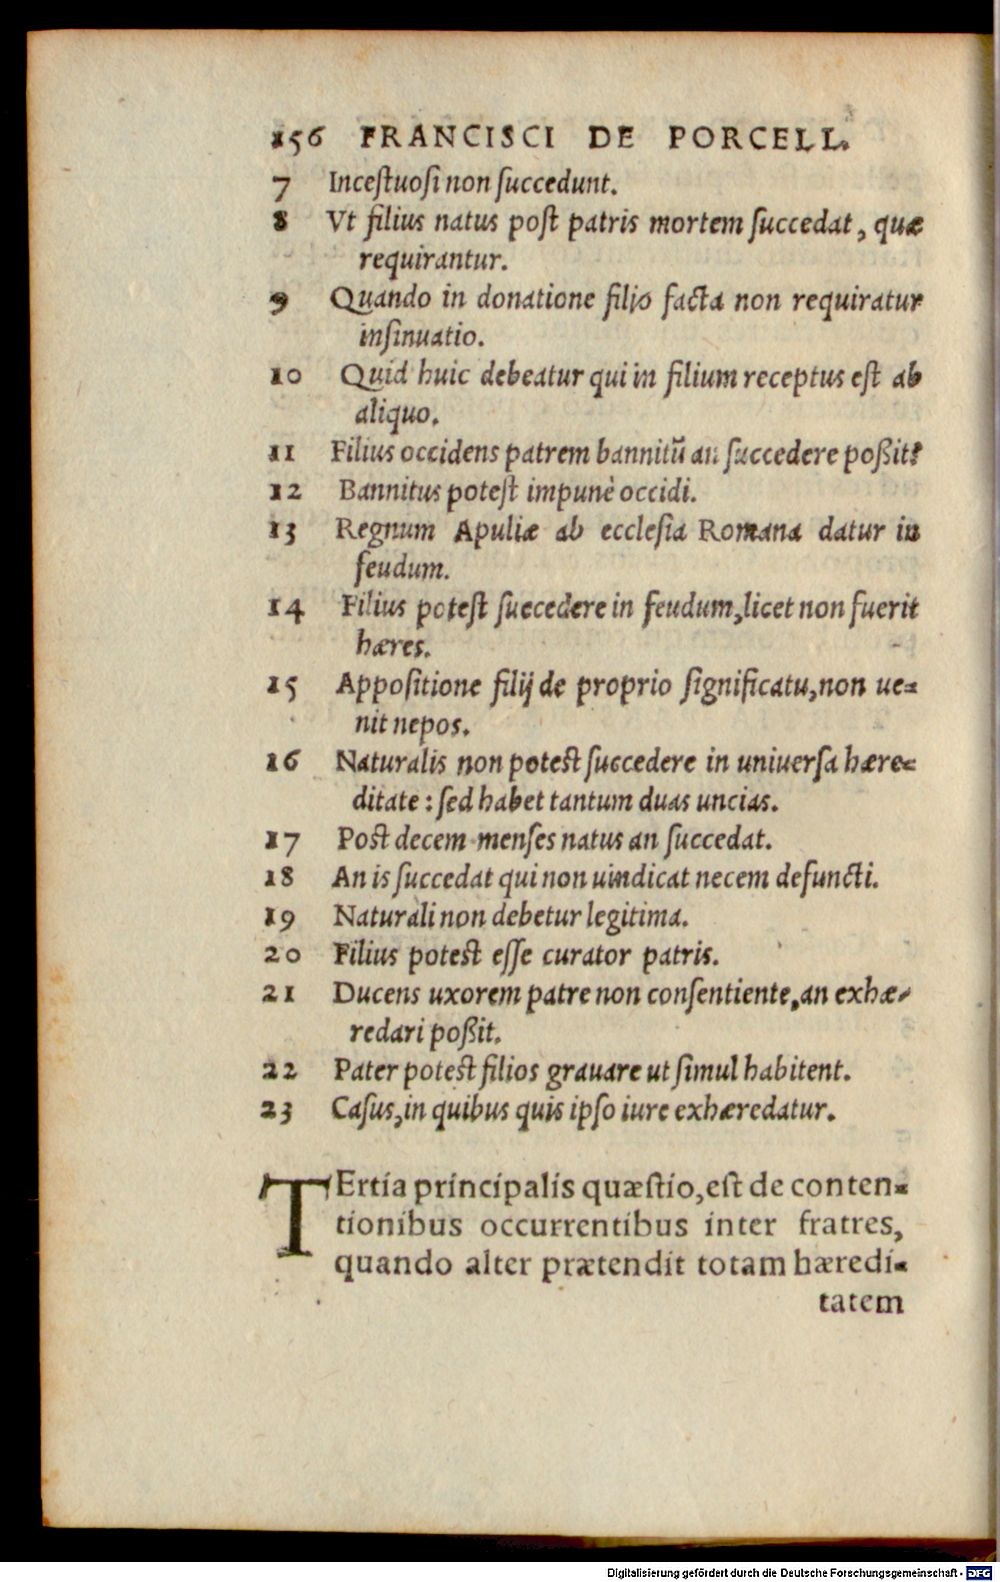 156 FRANCISCI DE PORCELL.
7 Inceſtuoſi non ſuccedunt.
8 Vt filius natus poſt patris mortem ſuccedat, quæ
requirantur.
9 Quando in donatione filio facta non requiratur
inſinuatio.
10 Quid huic debeatur qui in filium receptus eſt ab
aliquo.
11 Filius occidens patrem bannitũ an ſuccedere poßit?
12 Bannitus poteſt impunè occidi.
13 Regnum Apuliæ ab eccleſia Romana datur in
feudum.
14 Filius poteſt ſuccedere in feudum, licet non fuerit
hæres.
15 Appoſitione filij de proprio ſignificatu, non ue-
nit nepos.
16 Naturalis non poteſt ſuccedere in univerſa hære-
ditate : ſed habet tantum duas uncias.
17 Poſt decem menſes natus an ſuccedat.
18 An is ſuccedat qui non uindicat necem defuncti.
19 Naturali non debetur legitima.
20 Filius poteſt eſſe curator patris.
21 Ducens uxorem patre non conſentiente, an exhæ-
redari poßit.
22 Pater poteſt filios grauare ut ſimul habitent.
23 Caſus, in quibus quis ipſo iure exhæredatur.
TErtia principalis quæſtio, eſt de conten-
tionibus occurrentibus inter fratres,
quando alter prætendit totam hæredi-
tatem
Digitalisierung gefördert durch die Deutsche Forschungsgemeinschaft - DFG